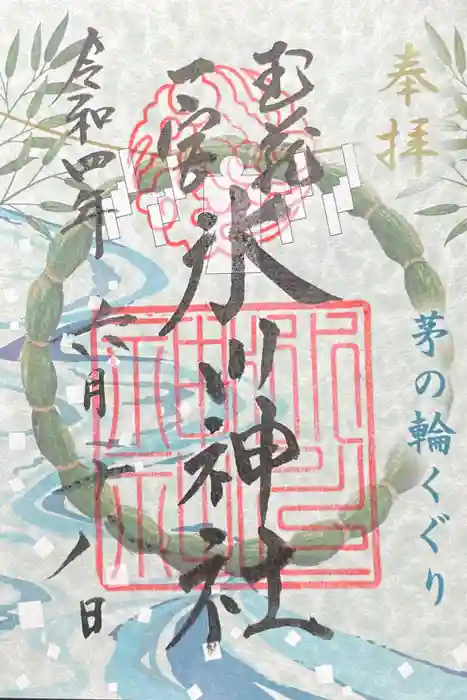 奉拝
茅の輪くぐり
武蔵
一宮
氷川神社
令和四年
六月十八日